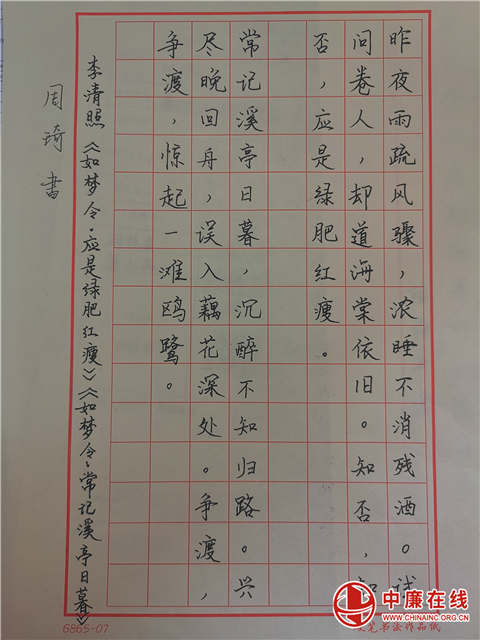 昨夜雨疏风骤，浓睡不消残酒。试
问卷人，却道海棠依旧。知否，知
否，应是绿肥红瘦。
常记溪亭日暮，沉醉不知归路。兴
尽晚回舟，误入藕花深处。争渡，
争渡，惊起一滩鸥鹭。
李清照《如梦令·应是绿肥红瘦》《如梦令·常记溪亭日暮》
周琦书
6865-07
书法作品纸
中廉在线
WWW.CHINAINC.ORG.CN